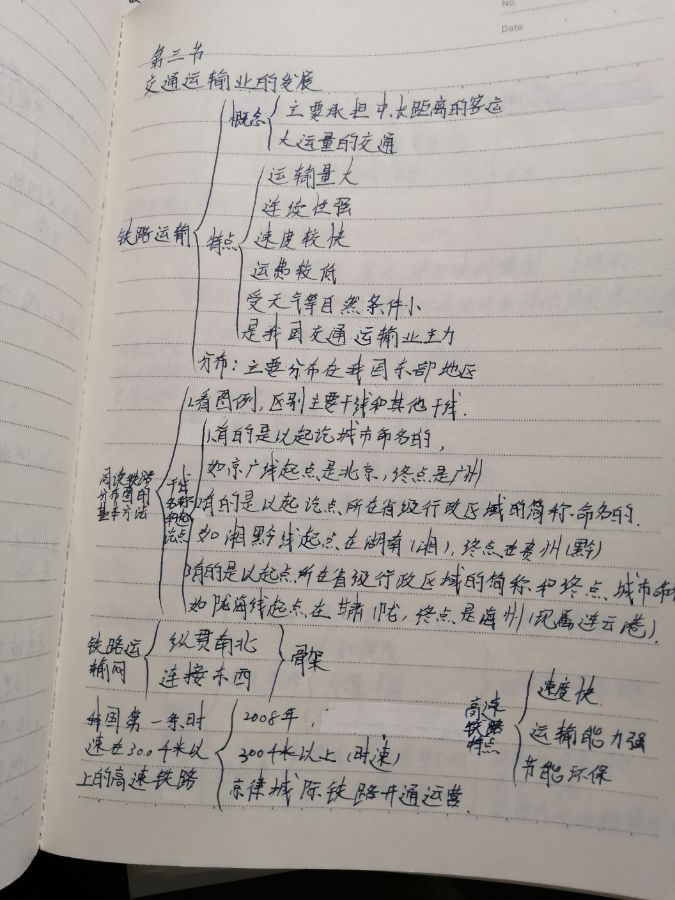 No.
Data
第三节
交通运输业的发展
概念
主要承担中、长距离的客运
大运量的交通
铁路运输
特点
运输量大
连续性强
速度较快
运费较低
受天气等自然条件小
是我国交通运输业主力
分布：主要分布在我国东部地区
阅读铁路
分布图的
基本方法
1.看图例，区别主要干线和其他干线.
干线
名称
和起
讫点
1.有的是以起讫城市命名的，
如京广线起点是北京，终点是广州
2.有的是以起讫点所在省级行政区域的简称命名的.
如湘黔线起点在湖南(湘)，终点在贵州(黔)
3有的是以起点所在省级行政区域的简称和终点城市
如陇海线起点在甘肃(陇，终点是海州(现属连云港).
铁路运
输网
纵贯南北
连接东西
骨架
我国第一条时
速在300千米以
上的高速铁路
2008年，
300千米以上(时速)
京津城际铁路开通运营.
高速
铁路
特点
速度快
运输能力强
节能环保